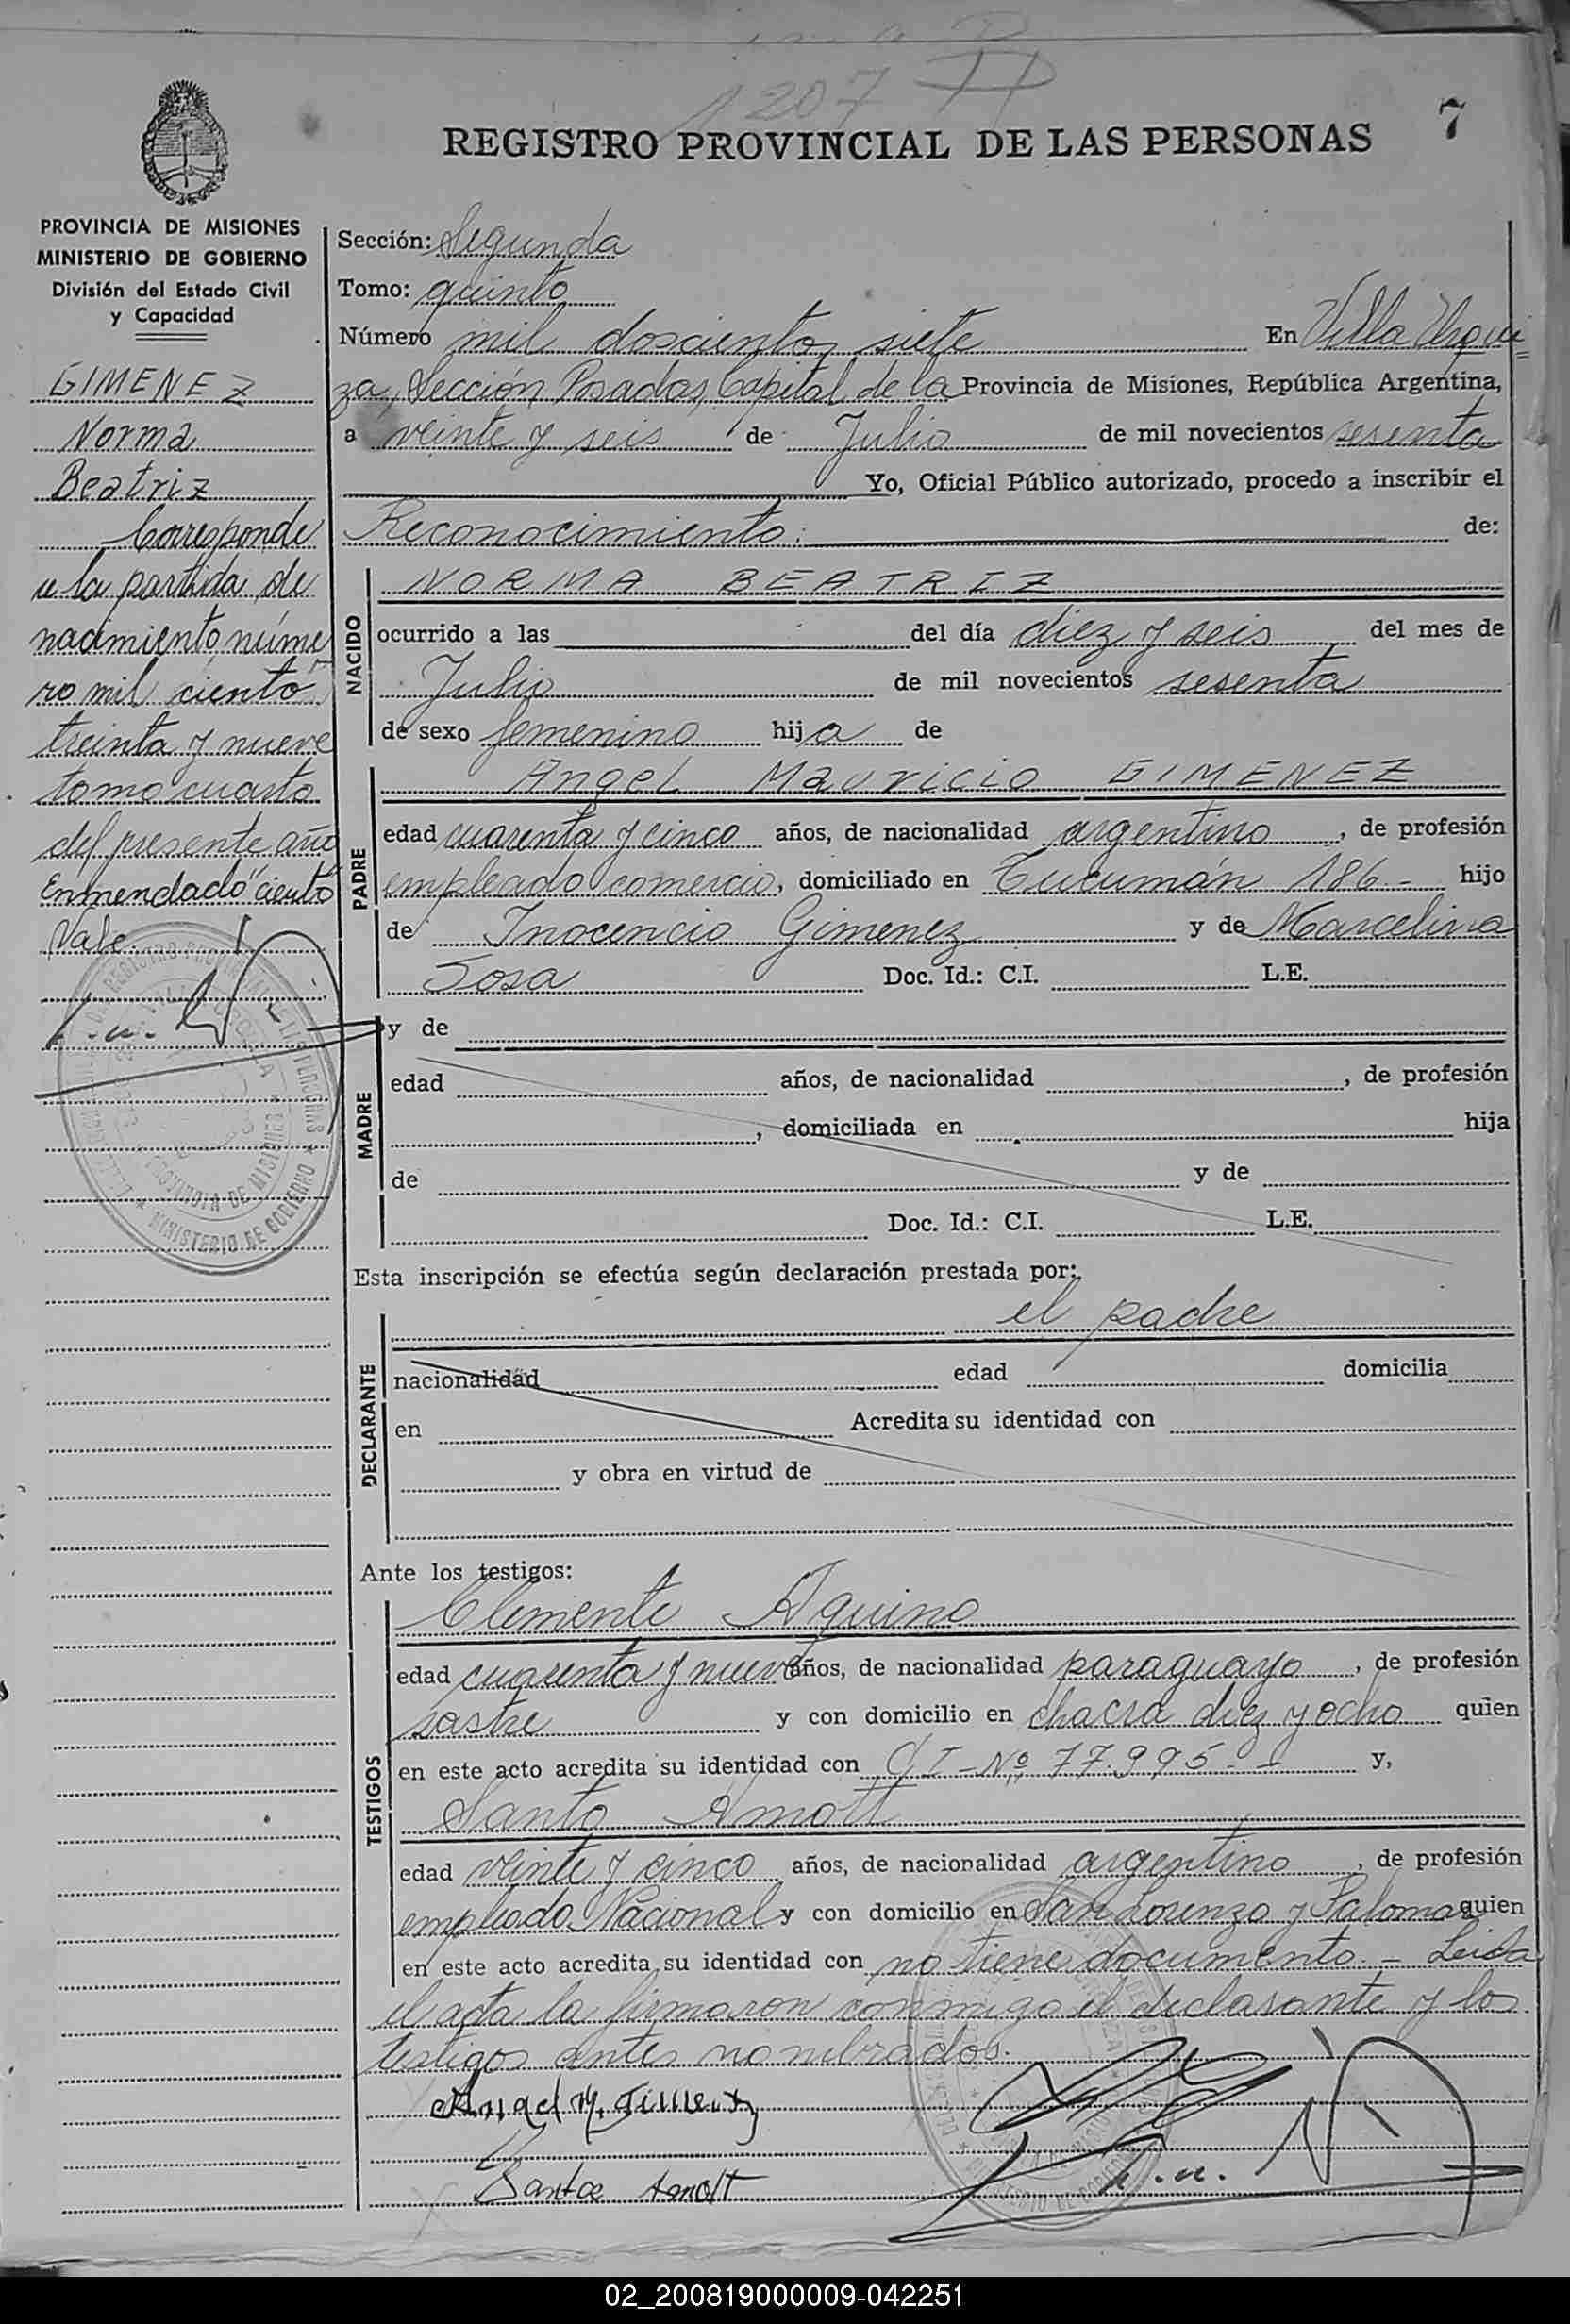 1207
7
REGISTRO PROVINCIAL DE LAS PERSONAS
PROVINCIA DE MISIONES
MINISTERIO DE GOBIERNO
División del Estado Civil
y Capacidad
GIMENEZ
Norma
Beatriz
Corresponde
a la partida de
nacimiento núme
ro mil ciento
treinta y nueve
tomo cuarto
del presente año
Enmendado "ciento"
Vale.
Sección: Segunda
Tomo: quinto
Número mil doscientos siete En Villa Urqui=
za, Sección Posadas, Capital de la Provincia de Misiones, República Argentina,
a veinte y seis de Julio de mil novecientos sesenta
Yo, Oficial Público autorizado, procedo a inscribir el
Reconocimiento: de:
NACIDO
NORMA BEATRIZ
ocurrido a las del día diez y seis del mes de
Julio de mil novecientos sesenta
de sexo femenino hija de
PADRE
Angel Mauricio GIMENEZ
edad cuarenta y cinco años, de nacionalidad argentino, de profesión
empleado comercio, domiciliado en Tucumán 186.- hijo
de Inocencio Gimenez y de Marcelina
Sosa Doc. Id.: C.I. L.E.
MADRE
y de
edad años, de nacionalidad , de profesión
, domiciliada en hija
de y de
Doc. Id.: C.I. L.E.
Esta inscripción se efectúa según declaración prestada por:
DECLARANTE
el padre
nacionalidad edad domicilia
en Acredita su identidad con
y obra en virtud de
Ante los testigos:
TESTIGOS
Clemente Aquino
edad cuarenta y nueve años, de nacionalidad paraguayo, de profesión
sastre y con domicilio en chacra diez y ocho quien
en este acto acredita su identidad con CI-Nº 77.995.- y,
Santo Arnott
edad veinte y cinco años, de nacionalidad argentino, de profesión
empleado Nacional y con domicilio en San Lorenzo y Palomar quien
en este acto acredita su identidad con no tiene documento.- Leida
el acta la firmaron conmigo el declarante y los
testigos antes nombrados.
Angel M. Jimenez
Santos Arnott
MINISTERIO DE GOBIERNO
PROVINCIA DE MISIONES
02_200819000009-042251